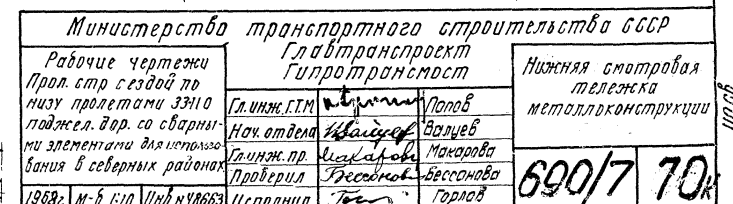 Министерство транспортного строительства СССР
Главтранспроект
Гипротрансмост
Рабочие чертежи
Прол. стр с ездой по
низу пролетами 33÷110
под жел. дор. со сварны-
ми элементами для использо-
вания в северных районах
1968г. М-б 1:10 Инв №48663
Гл. инж. Г.Т.М Попов
Нач. отдела Валуев Валуев
Гл. инж. пр. Макарова Макарова
Проверил Бессонова Бессонова
Исполнил Горлов
Нижняя смотровая
тележка
металлоконструкции
690/7 70к